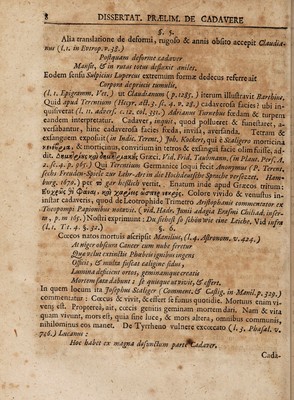 8 DISSERTAT. PRÆLIM. DE CADAVERE
§. 5.
Alia translatione de deformi, rugoso & annis obsito accepit Claudia-
nus (l. 1. in Eutrop. v. 38.)
Postquam deforme cadaver
Mansit, & in rugas totus defluxit aniles.
Eodem sensu Sulpicius Lupercus extremum formæ dedecus referre ait
Corpora deprimere tumulis,
(l. 1. Epigramm. Vet.) ut Claudianum (p. 1285.) iterum illustravit Barthius.
Quid apud Terentium (Hecyr. act. 3. sc. 4. v. 28.) cadaverosa facies? ubi in-
quisiverat (l. 11. adverf. c. 12. col. 531.) Adrianus Turnebus foedam & turpem
eandem interpretatur. Cadaver, inquit, quod polluerent & funestaret, a-
versabantur, hinc cadaverosa facies foeda, invisa, aversanda. Tetram &
exsanguem exposuit (in Indic. Terent.) Joh. Kockert, qui è Scaligero morticina
& morticinus, convitium in tetros & exsangui facie olim fuisse, ad-
dit. Græci. Vid. Frid. Taubmann. (in Plaut. Pers. A.
2. sc. 4. p. 965.) Qui Terentium Germanice loqui fecit Anonymus (P. Terent.
sechs Freuden-Spiele zur Lehr-Art in die Hochteutsche Sprache versetzet. Ham-
burg. 1670.) per gar häßlich vertit. Enatum inde apud Græcos tritum:
Colore vivido & venustus in-
star cadaveris, quod de Leotrophide Trimetro Aristophanis commentator ex
Theopompi Paponibus notavit. (vid. Hadr. Junii adagia Erasmi Chiliad. inser-
ta, p. m. 165.) Nostri exprimunt: Du siehest so schön wie eine Leiche. Vid. infra
(l. 1. T. 1. §. 32.)
§. 6.
Coecos natos mortuis ascripsit Manilius, (l. 4. Astronom. v. 424.)
At niger obscura Cancer cum nube feretur
Qua velut exstinctis Phœbeis ignibus ignes
Officit, & multa fuscat caligine sidus,
Lumina deficiens ortos, geminamque creatis
Mortem fata dabunt: se quisque ut vivit, & effert.
In quem locum ita Josephus Scaliger (Comment. & Castig. in Manil. p. 319.)
commentatur: Coecus & vivit, & effert se funus quotidie. Mortuus enim vi-
vens est. Propterea, ait, coecis genitis geminam mortem dari. Nam & vita
quam vivunt, mors est, quia sine luce, & mors altera, omnibus communis,
nihilominus eos manet. De Tyrrheno vulnere excoecato (l. 3. Phasal. v.
716.) Lucanus:
Hoc habet ex magna defunctum parte Cadaver.
Cada-